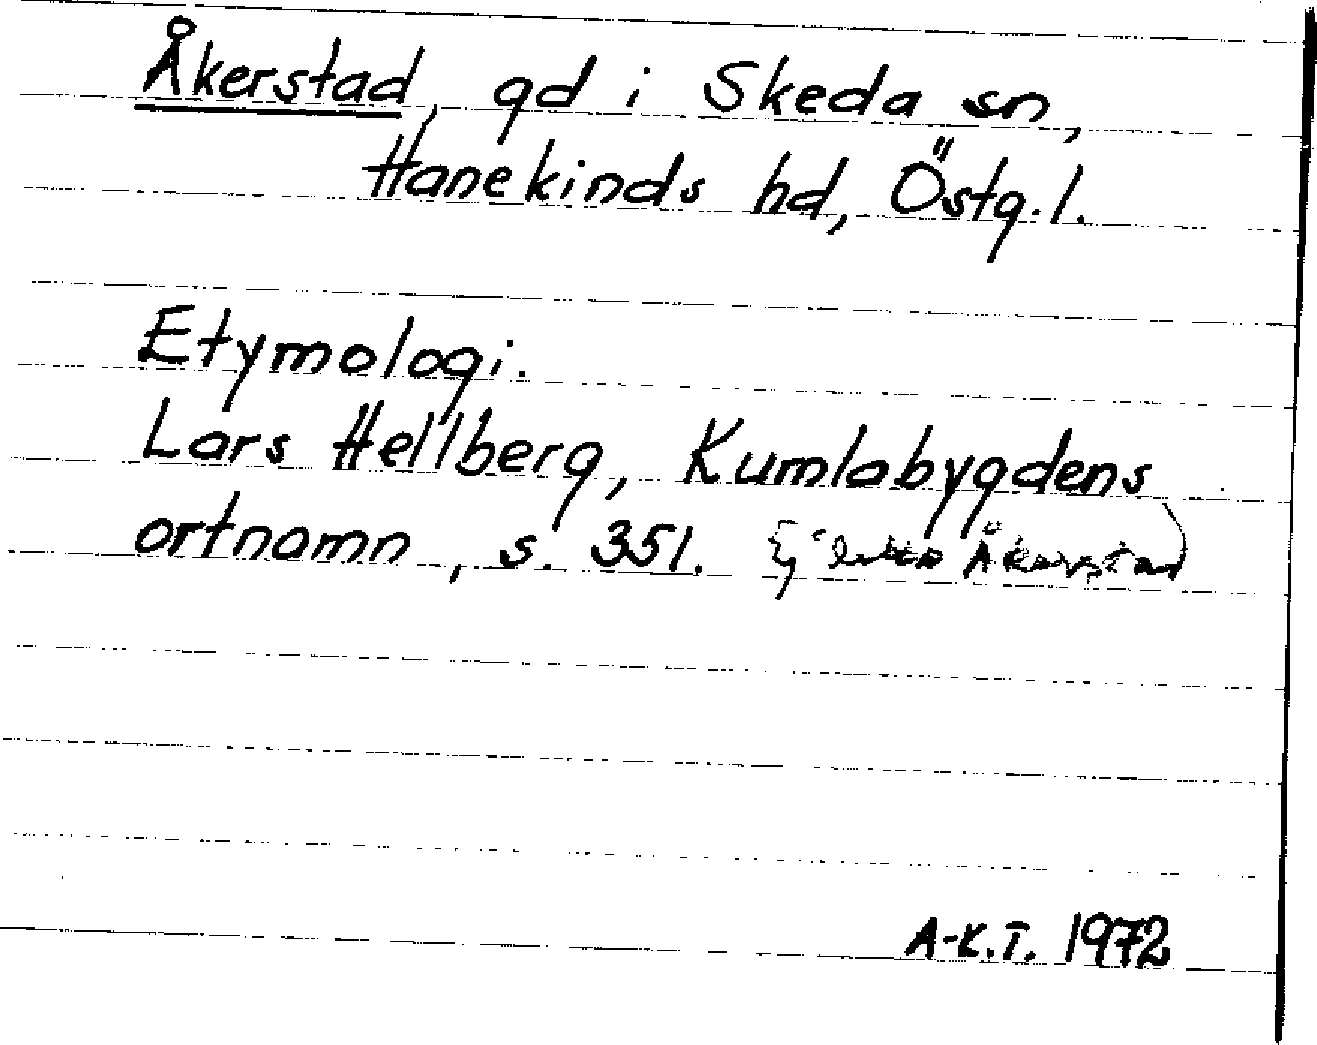 Åkerstad, gd i Skeda sn,
Hanekinds hd, Östg.l.
Etymologi.
Lars Hellberg, Kumlabygdens
ortnamn, s. 351. Ej detta Åkerstad)
A-K.T. 1972